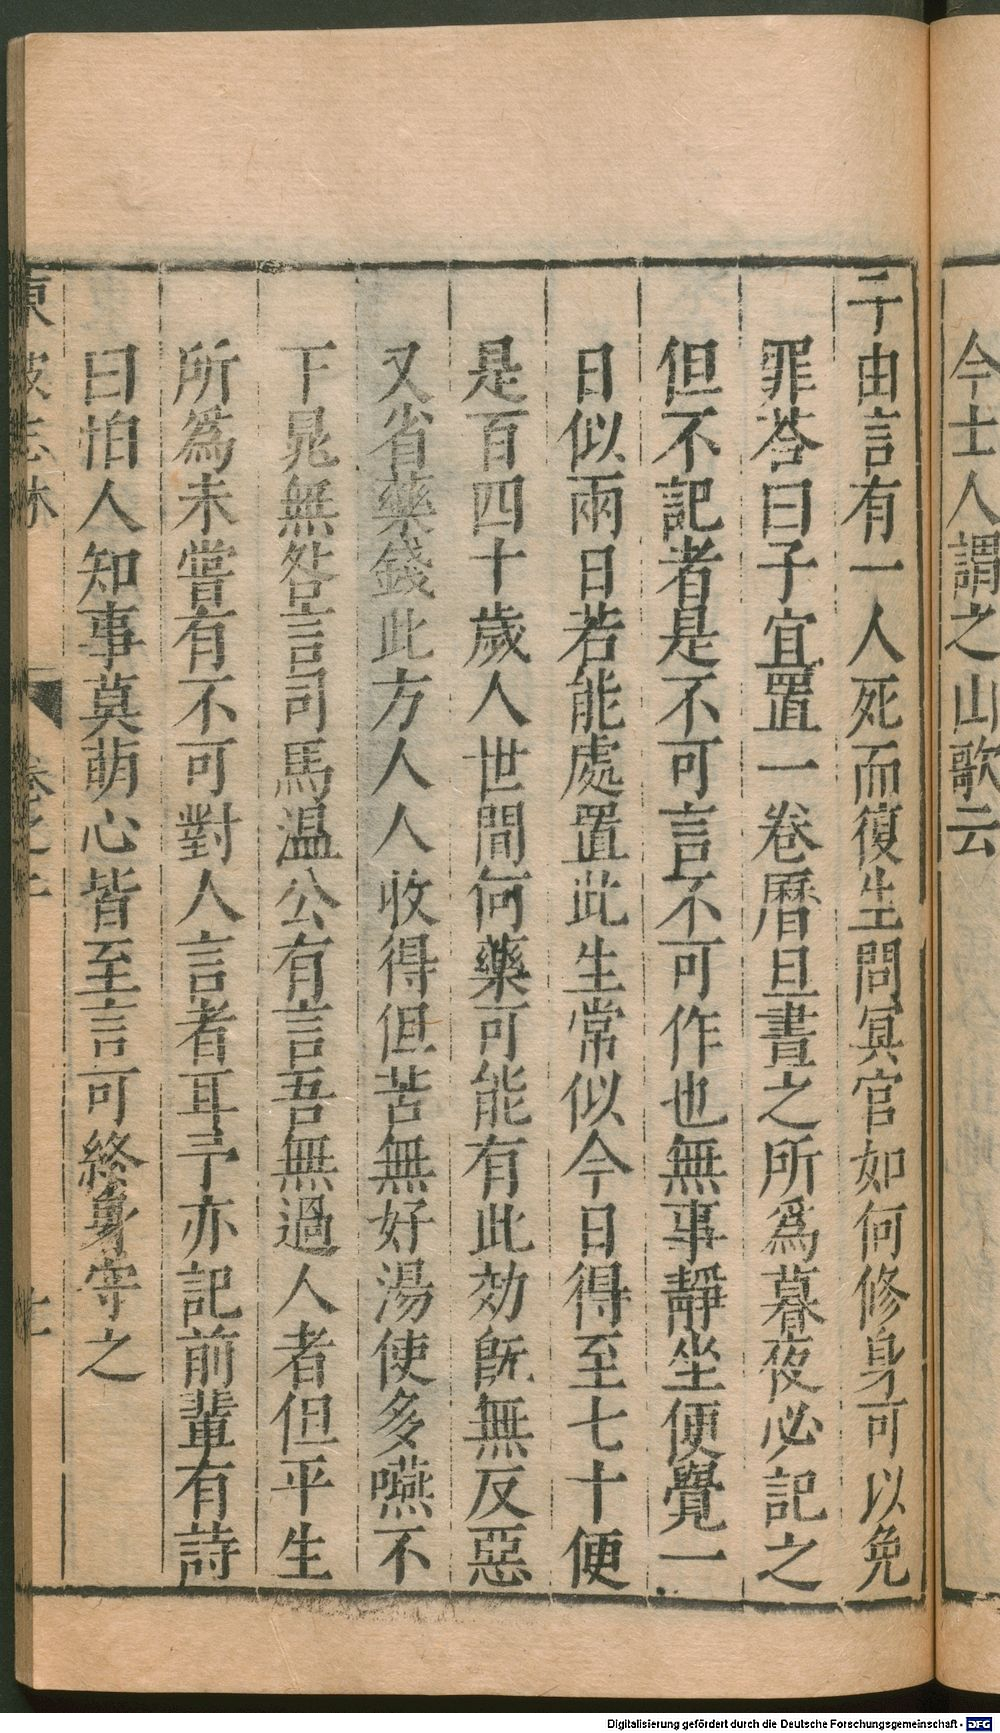 今士人謂之山歌云
子由言有一人死而復生問冥官如何修身可以免
罪荅曰子宜置一卷曆旦晝之所爲暮夜必記之
但不記者是不可言不可作也無事靜坐便覺一
日似兩日若能處置此生常似今日得至七十便
是百四十歲人世間何藥可能有此効旣無反惡
又省藥錢此方人人收得但苦無好湯使多嚥不
下晁無咎言司馬温公有言吾無過人者但平生
所爲未嘗有不可對人言者耳予亦記前輩有詩
曰怕人知事莫萌心皆至言可終身守之
東坡志林 卷之上
Digitalisierung gefördert durch die Deutsche Forschungsgemeinschaft - DFG